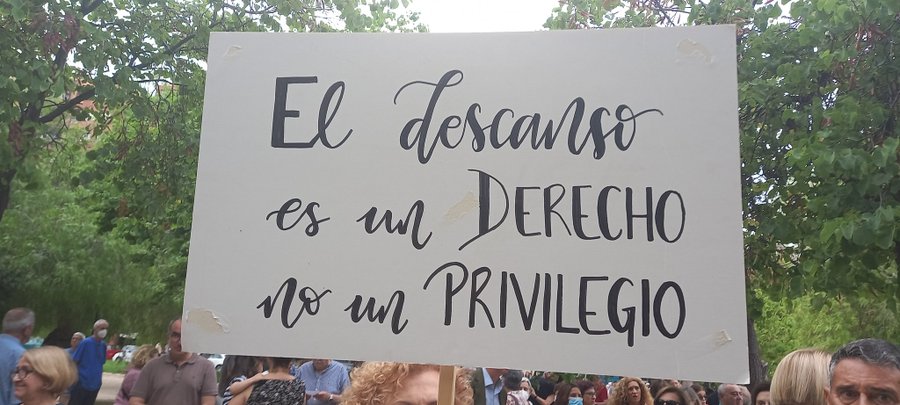 El descanso
es un DERECHO
no un PRIVILEGIO